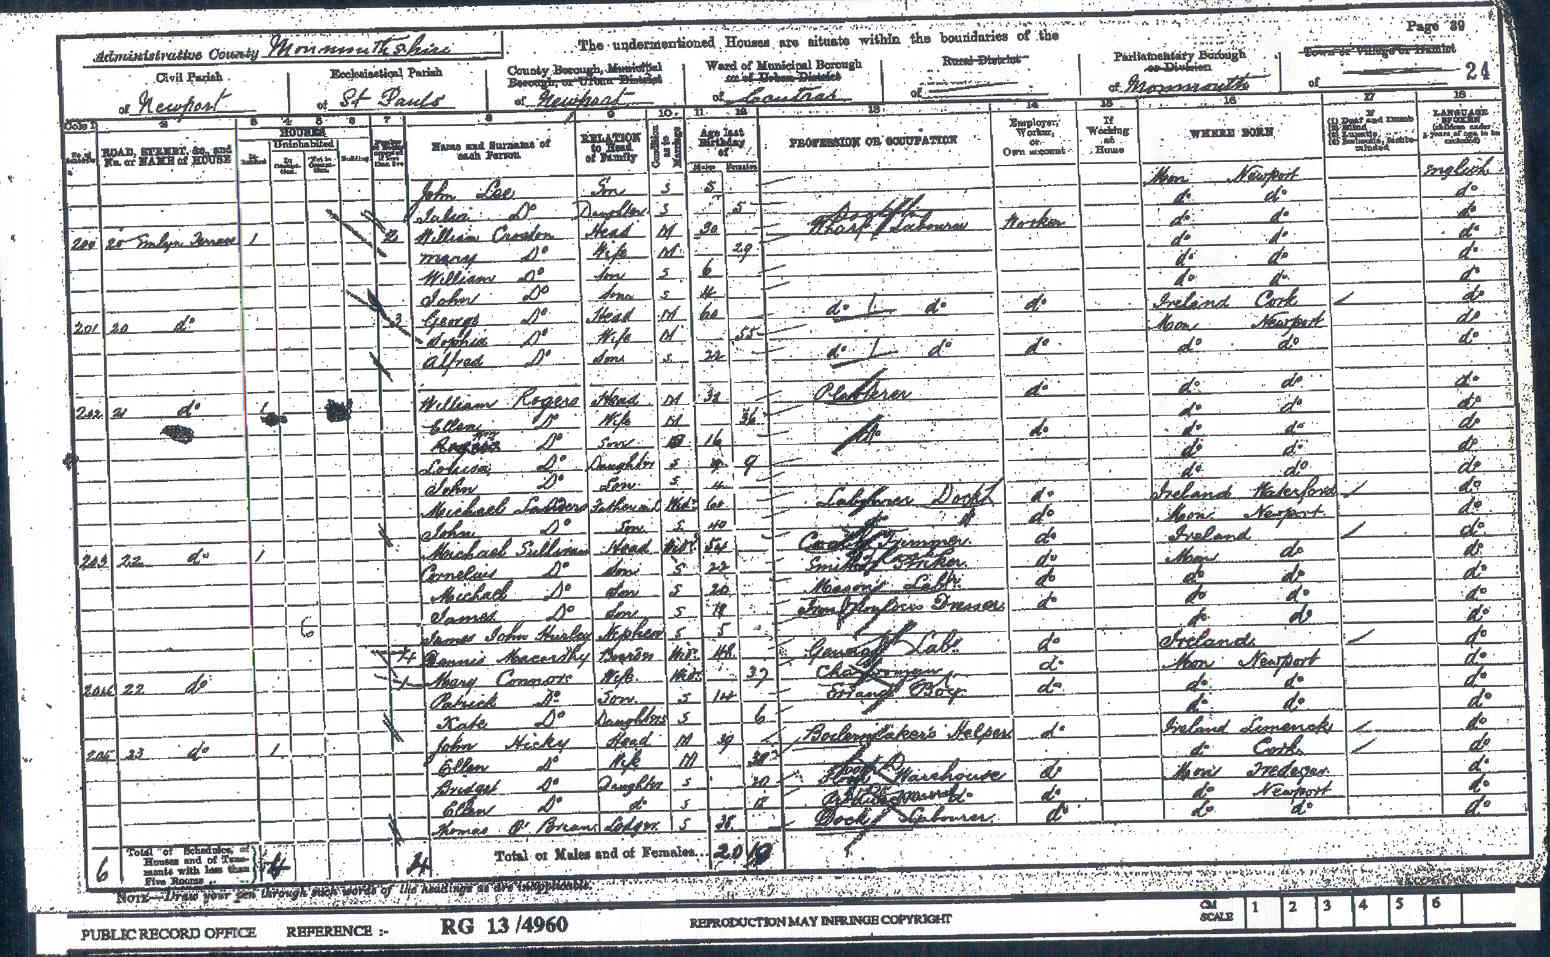 Page 39
Administrative County Monmouthshire
The undermentioned Houses are situate within the boundaries of the
24
Civil Parish of Newport
Ecclesiastical Parish of St Pauls
County Borough, Municipal Borough, or Urban District of Newport
Ward of Municipal Borough or of Urban District of
Rural District of
Parliamentary Borough or Division of Monmouth
Town or Village or Hamlet of
Cols 1 2 3 4 5 6 7 8 9 10 11 12 13 14 15 16 17 18
ROAD, STREET, &c., and No. or NAME of HOUSE
HOUSES
Uninhabited
Building
Name and Surname of each Person
RELATION to Head of Family
Condition as to Marriage
Age last Birthday of
Males Females
PROFESSION OR OCCUPATION
Employer, Worker, or Own account
If Working at Home
WHERE BORN
If (1) Deaf and Dumb (2) Blind (3) Lunatic (4) Imbecile, feeble-minded
LANGUAGE SPOKEN
John Lee Son S 5 Mon Newport English
Do Daughter S 5 do do do
200 20 Emlyn Terrace 1 2 William Croston Head M 30 Wharf Labourer Worker do do do
Mary Do Wife M 29 do do do
William Do Son S 6 do do do
John Do Son S 4 do do do
201 20 do 3 George Do Head M 60 do do do Ireland Cork do
Sophia Do Wife M 55 Mon Newport do
Alfred Do Son S 22 do do do do do do
202 21 do 1 William Rogers Head M Plasterer do do do do
Ellen Do Wife M 36 do do do
Wm Do Son 16 do do do do do
Louisa Do Daughter S 9 do do do
John Do Son S 4 do do do
Michael Saunders Father in L Widr 60 Labourer Dock do Ireland Waterford do
John Do Son S 40 do do Mon Newport do
203 22 do 1 Michael Sullivan Head Widr 54 Coal Trimmer do Ireland do
Cornelius Do Son S 22 Smiths Striker do Mon do do
Michael Do Son S 20 Masons Labr do do do do
James Do Son S Iron Dresser do do do do
James John Hurley Nephew S 5 do do do
6 4 Dennis Boarder Widr 48 General Lab. do Ireland do
204 22 do Mary Connors Wife Wid 37 Charwoman do Mon Newport do
Patrick Do Son S 14 Errand Boy do do do do
Kate Do Daughter S 6 do do do
205 23 do 1 John Hicky Head M 39 Boilermaker's Helper do Ireland Limerick do
Ellen Do Wife M 38 do Cork do
Bridget Do Daughter S 20 Warehouse do Mon Tredegar do
Ellen Do do S do do do Newport do
Thomas O'Brien Lodger S 38 Dock Labourer do do do do
6 Total of Schedules, of Houses and of Tenements with less than Five Rooms 4 4 Total of Males and of Females... 20 10
NOTE—Draw your pen through such words of the headings as are inapplicable.
PUBLIC RECORD OFFICE REFERENCE :- RG 13/4960 REPRODUCTION MAY INFRINGE COPYRIGHT CM SCALE 1 2 3 4 5 6